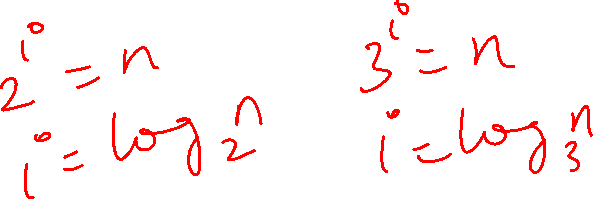 2^i = n
i = log_2 n
3^i = n
i = log_3 n